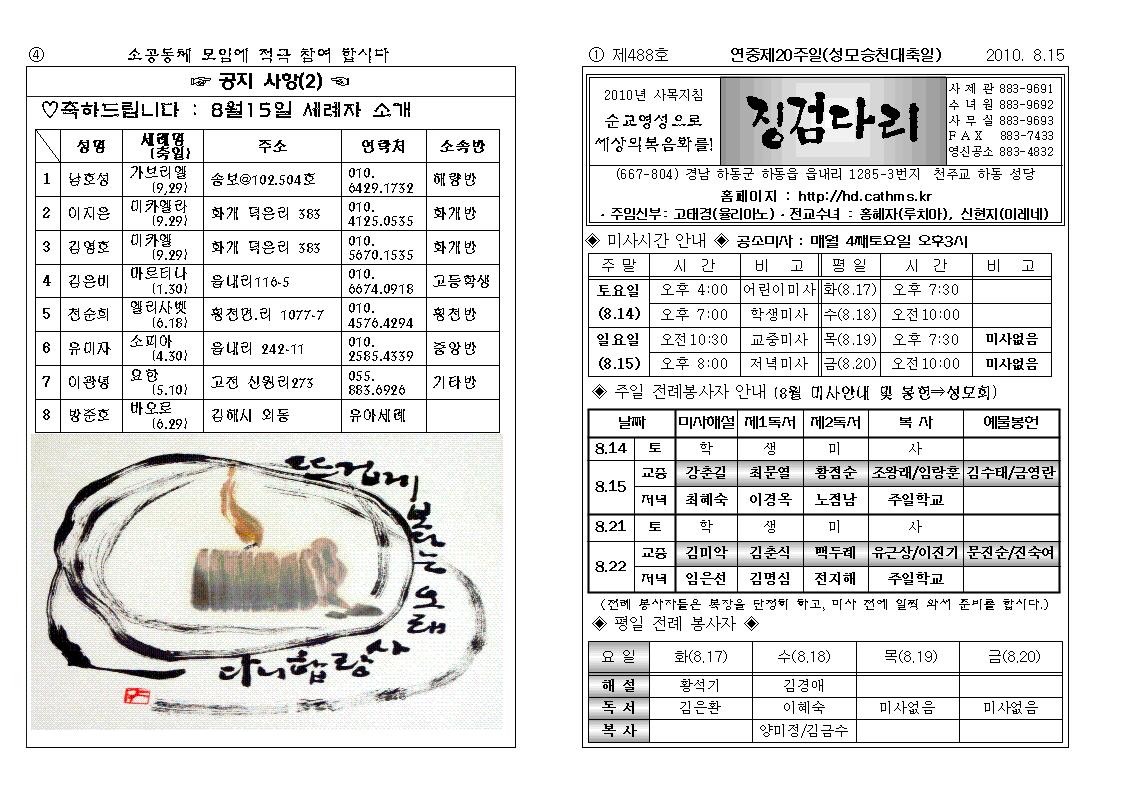 ④ 소공동체 모임에 적극 참여 합시다
☞ 공지 사항(2) ☜
♡축하드립니다 : 8월15일 세례자 소개
성명 세례명(축일) 주소 연락처 소속반
1 남호성 가브리엘(9.29) 송보@102.504호 010.6429.1732 해량반
2 이지은 미카엘라(9.29) 화개 덕은리 383 010.4125.0535 화개반
3 김영호 미카엘(9.29) 화개 덕은리 383 010.5670.1535 화개반
4 김은비 마르티나(1.30) 읍내리116-5 010.6674.0918 고등학생
5 전순희 엘리사벳(6.18) 횡천면.리 1077-7 010.4576.4294 횡천반
6 유미자 소피아(4.30) 읍내리 242-11 010.2585.4339 중앙반
7 이관녕 요한(5.10) 고전 신월리273 055.883.6926 기타반
8 방준호 바오로(6.29) 김해시 외동 유아세례
뜨겁게
본다는 오래
사랑합니다
① 제488호 연중제20주일(성모승천대축일) 2010. 8.15
2010년 사목지침
순교영성으로
세상의복음화를!
징검다리
사 제 관 883-9691
수 녀 원 883-9692
사 무 실 883-9693
F A X 883-7433
영신공소 883-4832
(667-804) 경남 하동군 하동읍 읍내리 1285-3번지 천주교 하동 성당
홈페이지 : http://hd.cathms.kr
· 주임신부 : 고태경(율리아노) · 전교수녀 : 홍혜자(루치아), 신현지(이레네)
◈ 미사시간 안내 ◈ 공소미사 : 매월 4째토요일 오후3시
주 말 시 간 비 고 평 일 시 간 비 고
토요일 오후 4:00 어린이미사 화(8.17) 오후 7:30
(8.14) 오후 7:00 학생미사 수(8.18) 오전10:00
일요일 오전10:30 교중미사 목(8.19) 오후 7:30 미사없음
(8.15) 오후 8:00 저녁미사 금(8.20) 오전10:00 미사없음
◈ 주일 전례봉사자 안내 (8월 미사안내 및 봉헌⇒성모회)
날짜 미사해설 제1독서 제2독서 복 사 예물봉헌
8.14 토 학 생 미 사
8.15 교중 강춘길 최문열 황점순 조왕래/임랑훈 김수태/금영란
저녁 최혜숙 이경옥 노점남 주일학교
8.21 토 학 생 미 사
8.22 교중 김미악 김춘식 백두례 유근상/이진기 문진순/진숙여
저녁 임은선 김명심 전지해 주일학교
(전례 봉사자들은 복장을 단정히 하고, 미사 전에 일찍 와서 준비를 합시다.)
◈ 평일 전례 봉사자 ◈
요 일 화(8.17) 수(8.18) 목(8.19) 금(8.20)
해 설 황석기 김경애
독 서 김은환 이혜숙 미사없음 미사없음
복 사 양미정/김금수